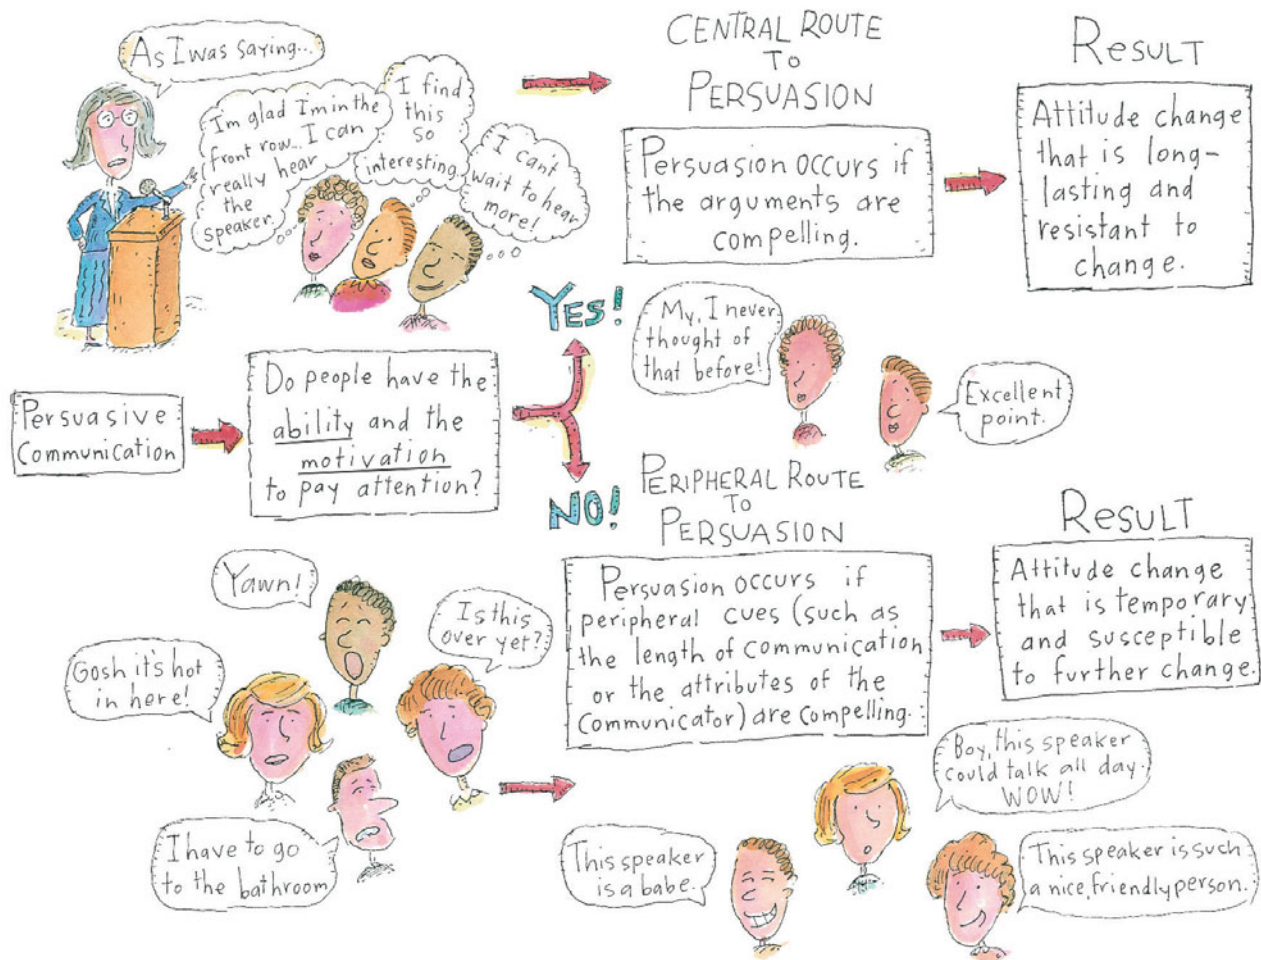 As I was saying...
I'm glad I'm in the
front row... I can
really hear
the
speaker.
I find
this
so
interesting.
I can't
wait to hear
more!
CENTRAL ROUTE
TO
PERSUASION
Persuasion occurs if
the arguments are
compelling.
RESULT
Attitude change
that is long-
lasting and
resistant to
change.
YES!
My, I never
thought of
that before!
Excellent
point.
Persuasive
Communication
Do people have the
ability and the
motivation
to pay attention?
NO!
PERIPHERAL ROUTE
TO
PERSUASION
Persuasion occurs if
peripheral cues (such as
the length of communication
or the attributes of the
communicator) are compelling.
RESULT
Attitude change
that is temporary
and susceptible
to further change.
Yawn!
Is this
over yet?
Gosh it's hot
in here!
I have to go
to the bathroom
This speaker
is a babe.
Boy, this speaker
could talk all day.
WOW!
This speaker is such
a nice, friendly person.